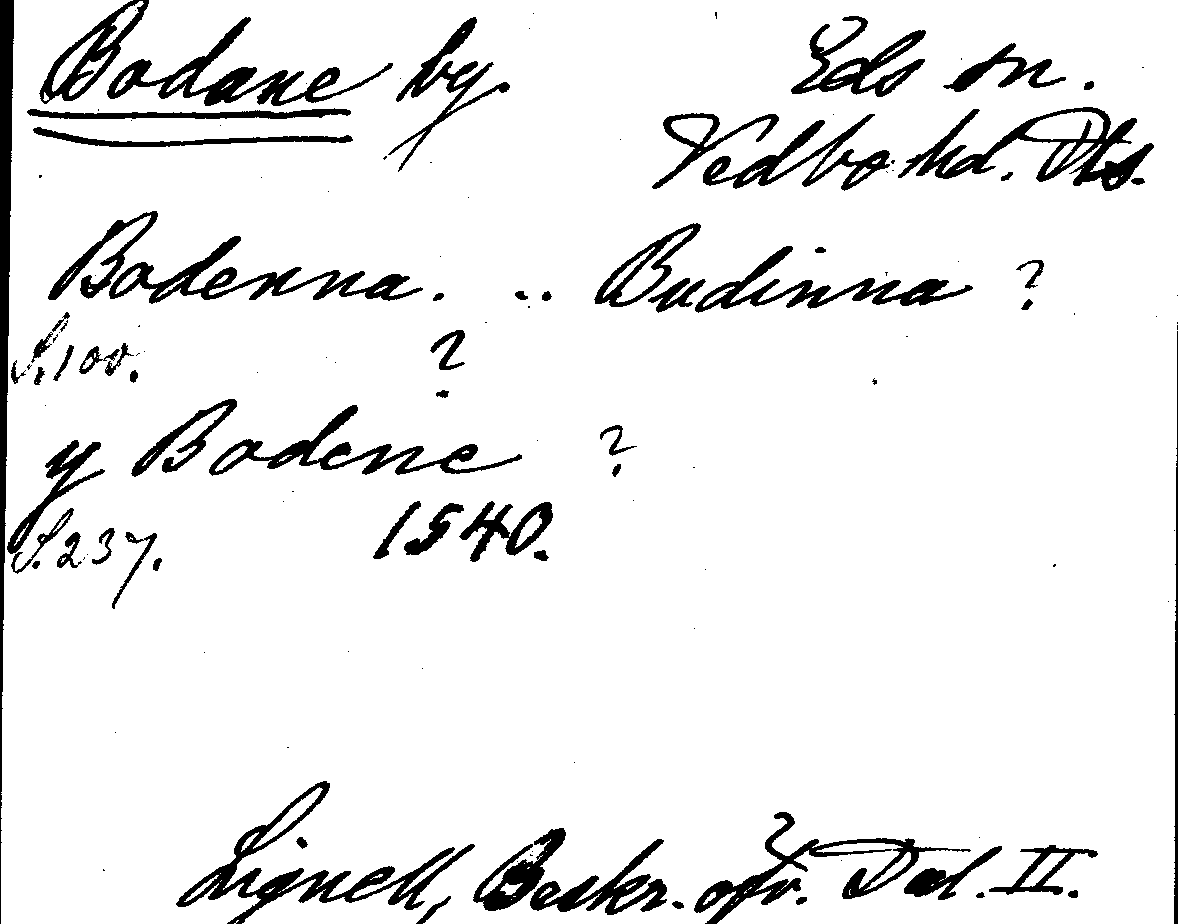 Bodane by.
Eds sn.
Vedbo hd. Dls.
Bodenna. .. Budinna ?
S. 100. ?
y Bodene ?
S. 237. 1540.
Lignell, Beskr. öfv. Dal. II.